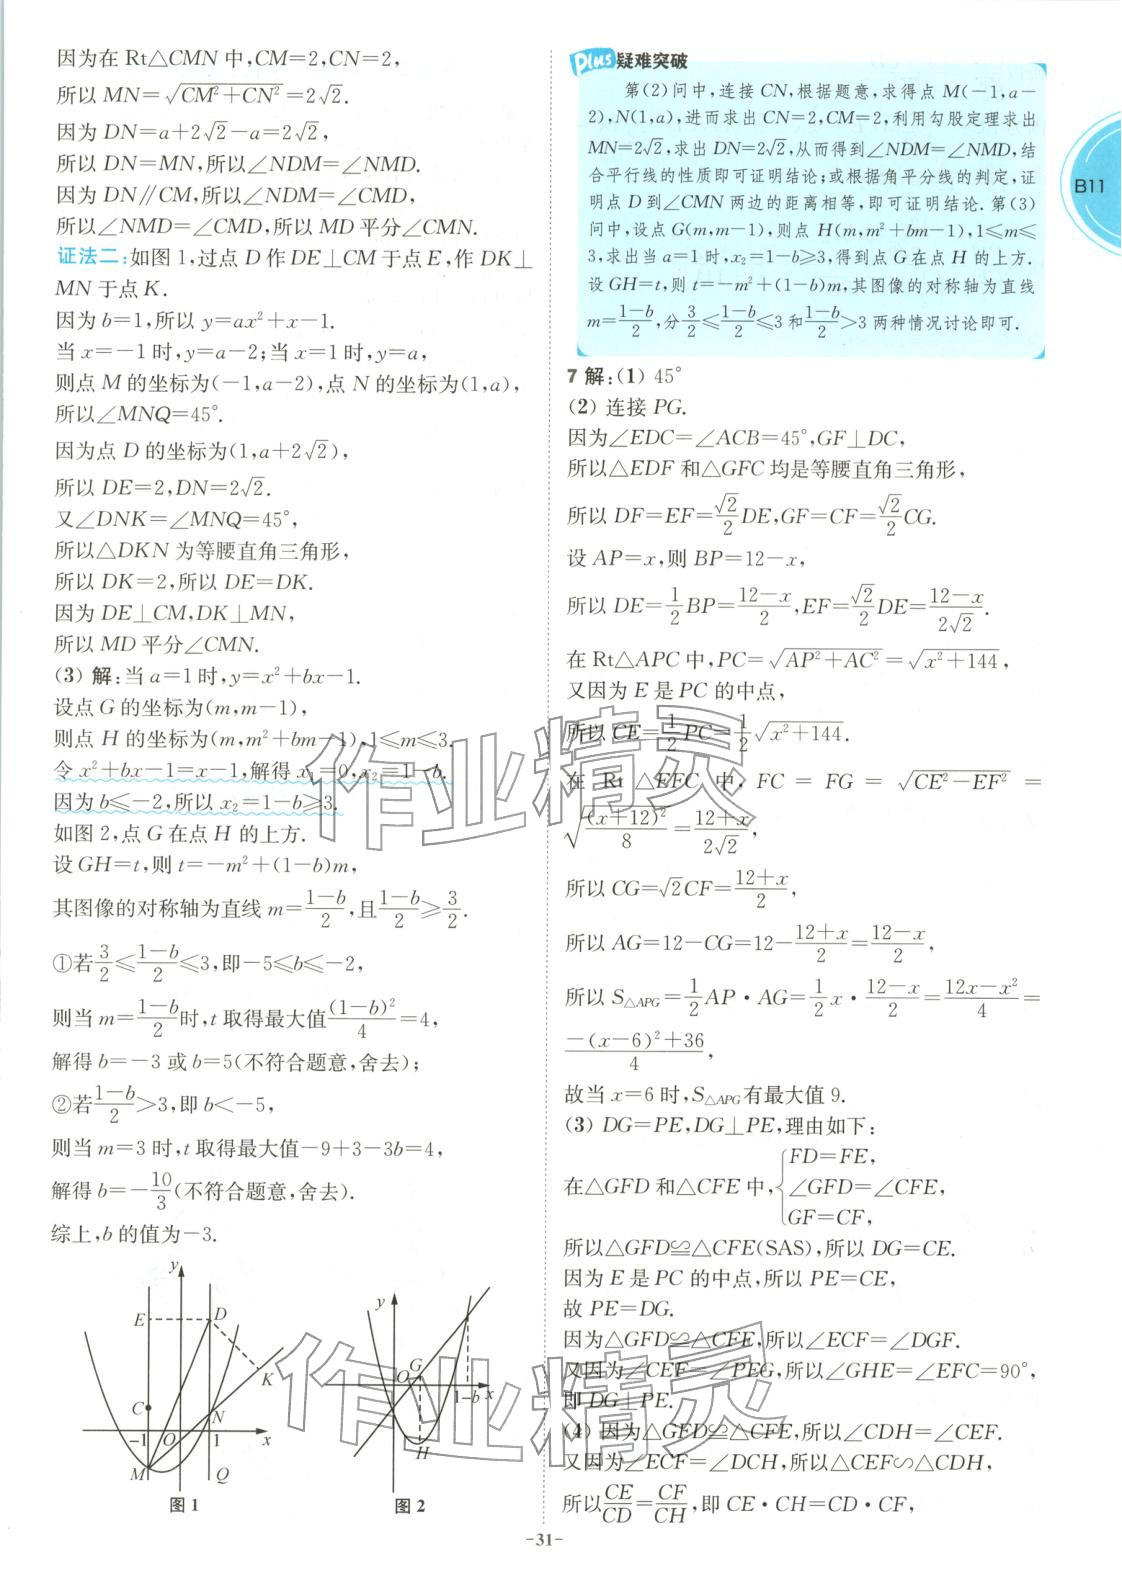 因为在 Rt△CMN 中,CM=2,CN=2,
所以 MN=√(CM²+CN²)=2√2.
因为 DN=a+2√2-a=2√2,
所以 DN=MN,所以∠NDM=∠NMD.
因为 DN∥CM,所以∠NDM=∠CMD,
所以∠NMD=∠CMD,所以 MD 平分∠CMN.
证法二:如图 1,过点 D 作 DE⊥CM 于点 E,作 DK⊥
MN 于点 K.
因为 b=1,所以 y=ax²+x-1.
当 x=-1 时,y=a-2;当 x=1 时,y=a,
则点 M 的坐标为(-1,a-2),点 N 的坐标为(1,a),
所以∠MNQ=45°.
因为点 D 的坐标为(1,a+2√2),
所以 DE=2,DN=2√2.
又∠DNK=∠MNQ=45°,
所以△DKN 为等腰直角三角形,
所以 DK=2,所以 DE=DK.
因为 DE⊥CM,DK⊥MN,
所以 MD 平分∠CMN.
(3) 解:当 a=1 时,y=x²+bx-1.
设点 G 的坐标为(m,m-1),
则点 H 的坐标为(m,m²+bm-1),1≤m≤3.
令 x²+bx-1=x-1,解得 x₁=0,x₂=1-b.
因为 b≤-2,所以 x₂=1-b≥3.
如图 2,点 G 在点 H 的上方.
设 GH=t,则 t=-m²+(1-b)m,
其图像的对称轴为直线 m=(1-b)/2,且(1-b)/2≥3/2.
①若3/2≤(1-b)/2≤3,即-5≤b≤-2,
则当 m=(1-b)/2时,t 取得最大值(1-b)²/4=4,
解得 b=-3 或 b=5(不符合题意,舍去);
②若(1-b)/2>3,即 b<-5,
则当 m=3 时,t 取得最大值-9+3-3b=4,
解得 b=-10/3(不符合题意,舍去).
综上,b 的值为-3.
y
E
D
K
C
N
-1
O
1
x
M
Q
图 1
y
G
O
1-b
x
H
图 2
Plus疑难突破
第(2)问中,连接 CN,根据题意,求得点 M(-1,a-
2),N(1,a),进而求出 CN=2,CM=2,利用勾股定理求出
MN=2√2,求出 DN=2√2,从而得到∠NDM=∠NMD,结
合平行线的性质即可证明结论;或根据角平分线的判定,证
明点 D 到∠CMN 两边的距离相等,即可证明结论.第(3)
问中,设点 G(m,m-1),则点 H(m,m²+bm-1),1≤m≤
3,求出当 a=1 时,x₂=1-b≥3,得到点 G 在点 H 的上方.
设 GH=t,则 t=-m²+(1-b)m,其图像的对称轴为直线
m=(1-b)/2,分3/2≤(1-b)/2≤3 和(1-b)/2>3 两种情况讨论即可.
B11
7 解:(1) 45°
(2) 连接 PG.
因为∠EDC=∠ACB=45°,GF⊥DC,
所以△EDF 和△GFC 均是等腰直角三角形,
所以 DF=EF=√2/2DE,GF=CF=√2/2CG.
设 AP=x,则 BP=12-x,
所以 DE=1/2BP=(12-x)/2,EF=√2/2DE=(12-x)/(2√2).
在 Rt△APC 中,PC=√(AP²+AC²)=√(x²+144),
又因为 E 是 PC 的中点,
所以 CE=1/2PC=1/2√(x²+144).
在 Rt△EFC 中,FC=FG=√(CE²-EF²)=
√((x+12)²/8)=(12+x)/(2√2),
所以 CG=√2CF=(12+x)/2,
所以 AG=12-CG=12-(12+x)/2=(12-x)/2,
所以 S△APG=1/2AP·AG=1/2x·(12-x)/2=(12x-x²)/4=
(-(x-6)²+36)/4,
故当 x=6 时,S△APG有最大值 9.
(3) DG=PE,DG⊥PE,理由如下:
在△GFD 和△CFE 中,{FD=FE,
∠GFD=∠CFE,
GF=CF,
所以△GFD≌△CFE(SAS),所以 DG=CE.
因为 E 是 PC 的中点,所以 PE=CE,
故 PE=DG.
因为△GFD≌△CFE,所以∠ECF=∠DGF.
又因为∠CEF=∠PEG,所以∠GHE=∠EFC=90°,
即 DG⊥PE.
(4) 因为△GFD≌△CFE,所以∠CDH=∠CEF.
又因为∠ECF=∠DCH,所以△CEF∽△CDH,
所以CE/CD=CF/CH,即 CE·CH=CD·CF,
-31-
作业精灵
作业精灵